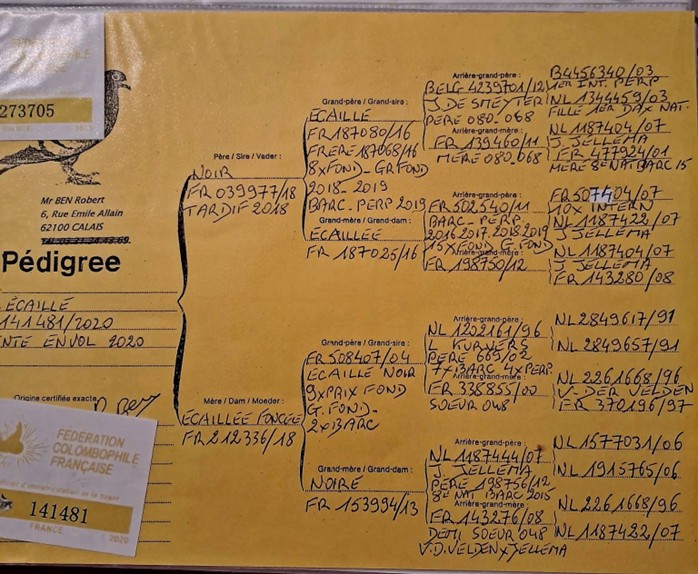 273705
Mr BEN Robert
6, Rue Emile Allain
62100 CALAIS
Pédigree
ECAILLE
141481/2020
ENVOL 2020
Origine certifiée exacte
FEDERATION
COLOMBOPHILE
FRANÇAISE
141481
FRANCE
2020
Père / Sire / Vader :
NOIR
FR 039977/18
TARDIF 2018
Mère / Dam / Moeder :
ECAILLÉE FONCÉE
FR 212336/18
Grand-père / Grand-sire :
ECAILLE
FR 187080/16
FRERE 187068/16
8XFOND-GRFOND
2018-2019
BARC-PERP 2019
Grand-mère / Grand-dam :
ECAILLEE
FR 187025/16
Grand-père / Grand-sire :
FR 508407/04
ECAILLE NOIR
9XPRIX FOND
G. FOND-
2XBARC
Grand-mère / Grand-dam :
NOIRE
FR 153994/13
Arrière-grand-père :
BELG 4239701/12
J. DE SMEYTER
PERE 080-068
Arrière-grand-mère :
FR 139460/11
MERE 080-068
Arrière-grand-père :
FR 502540/11
BARC-PERP
2016 2017 2018 2019
15XFOND G. FOND
Arrière-grand-mère :
FR 198750/12
Arrière-grand-père :
NL 1202161/96
L KURVERS
PERE 669/02
7XBARC 4XPERP
Arrière-grand-mère :
FR 338855/00
SOEUR 048
Arrière-grand-père :
NL 1187444/07
J. JELLEMA
PERE 198756/12
8E NAT BARC 2015
Arrière-grand-mère :
FR 143276/08
DEMI SOEUR 048
V.D.VELDEN X JELLEMA
B4456340/03
1ER INT. PERP
NL 1344459/03
FILLE 1ER DAX NAT-
NL 1187404/07
J JELLEMA
FR 477924/01
MERE 8E NAT BARC 15
FR 507404/07
10X INTERN
NL 1187422/07
J JELLEMA
NL 1187404/07
J. JELLEMA
FR 143280/08
NL 2849617/91
NL 2849657/91
NL 2261668/96
V-DER VELDEN
FR 370196/97
NL 1577031/06
NL 1915765/06
NL 2261668/96
NL 1187422/07